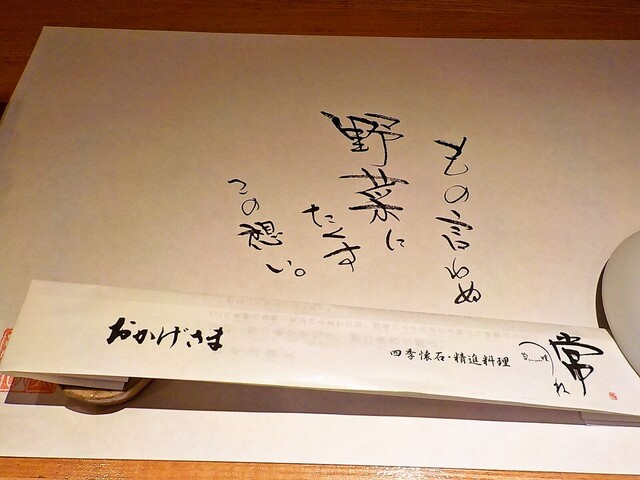 もの言わぬ
野菜に
たくす
この想い。
おかげさま
四季懐石・精進料理
常